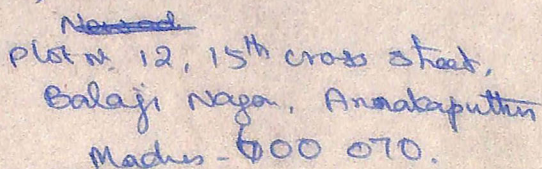 Plot No. 12, 15th cross street,
Balaji Nagar, Anakaputhur
Madras - 600 070.